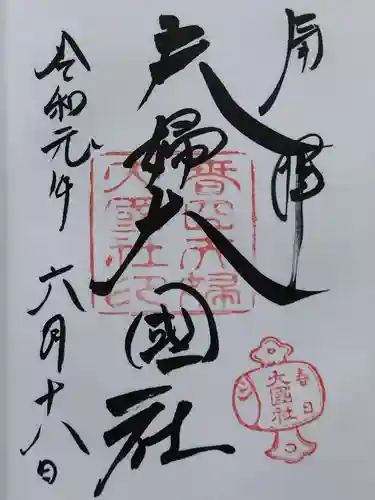 奉拝
夫婦大國社
令和元年
六月十八日
春日夫婦
大國社印
春日
大國社